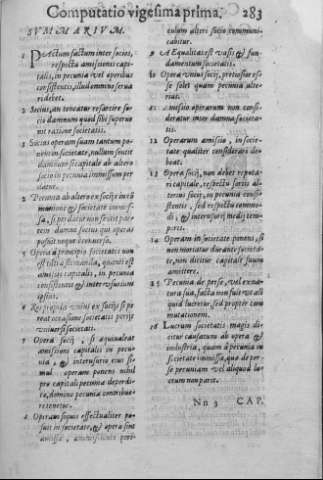 Computatio vigesima prima. 283
SVMMARIVM.
1 PActum factum inter socios,
respectu amissionis capi-
talis, in pecunia vel operibus
consistentis, illud omnino serua
ri debet.
2 Socius, an teneatur resarcire so-
cio damnum quod sibi superue
nit ratione societatis.
3 Socius operam suam tantum po-
nens in societate, nullum sentit
damnum si capitale ab altero
socio in pecunia immissum per
datur.
Pecunia ab altero ex socijs
societate
sa, si perdatur non
damni socius qui operas
posuit neque econuerso.
5 Opera principio societatis non
est
amissi capitalis, in pecunia
consistentis & inter
ipsius.
6 ex socijs si pe
reat occasione societatis perijt
vniuersi societati.
7 Opera socij, si aequaleat
amissioni capitalis in pecu
nia, & interusurij eius si-
mul, operam ponens nihil
pro capitali pecuniae deperdi-
tae, domino pecuniae contribue-
re tenetur.
8 Operam si quis effectualiter po-
suit in societate, & opera sint
amissa,
culum alteri socio communi-
cabitur.
9 AEqualitas est vasis & fun-
damentum societatis.
10 Opera vnius socij, pretiosior es-
se solet quam pecunia alte-
rius.
11 Amissio operarum non consi-
deratur inter damna societa-
tis.
12 Operarum amissio, in socie-
tate qualiter considerari de-
beat.
13 Opera socij, non debet reputa-
ri capitale, respectu sortis al-
terius socij, in pecunia consi-
stente, sed respectu commo-
di, & interusurij medij temp-
oris.
14 Operam in societate ponens, si
non moriatur durante societa-
te, non dicitur capitale suum
amittere.
15 Pecunia de per se, vel ex na-
tura sua, facta non fuit vt ali
quid lucretur, sed propter com
mutationem.
16 Lucrum societatis magis di-
citur causatum ab opera &
industria, quam à pecunia in
societate immissa, quia de per-
se pecuniam vel aliquod lu-
crum non parit.
Nn 3 CAP.